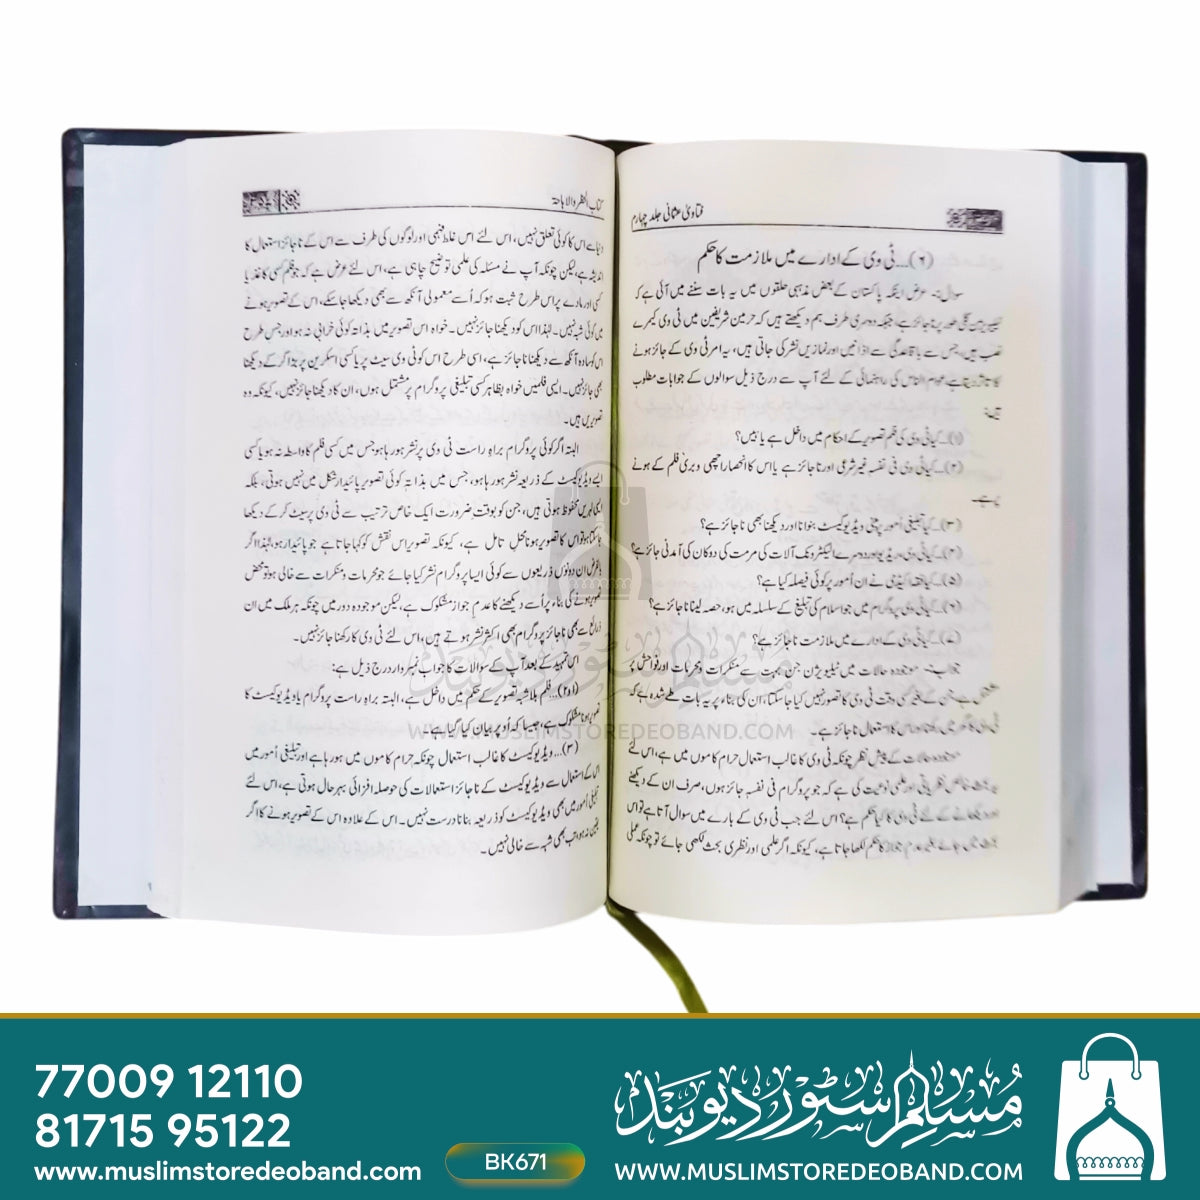 فتاویٰ عثمانی جلد چہارم
(۶)... ٹی وی کے ادارے میں ملازمت کا حکم
سوال:۔ عرض اینکہ پاکستان کے بعض مذہبی حلقوں میں یہ بات سننے میں آئی ہے کہ
پر ناجائز ہے، جبکہ دوسری طرف ہم دیکھتے ہیں کہ حرمین شریفین میں ٹی وی کیمرے
نصب ہیں، جس سے باقاعدگی سے اذانیں اور نمازیں نشر کی جاتی ہیں، یہ امر ٹی وی کے جائز ہونے
کا تأثر دیتا ہے، عوام الناس کی راہنمائی کے لئے آپ سے درج ذیل سوالوں کے جوابات مطلوب
ہیں:
(۱)... کیا ٹی وی کی فلم تصویر کے احکام میں داخل ہے یا نہیں؟
(۲)... کیا ٹی وی فی نفسہٖ غیر شرعی اور ناجائز ہے یا اس کا انحصار اچھی و بری فلم کے ہونے
پر ہے۔
(۳)... کیا تبلیغی اُمور پر مبنی ویڈیو کیسٹ بنوانا اور دیکھنا بھی ناجائز ہے؟
(۴)... کیا ٹی وی، ریڈیو اور دوسرے الیکٹرونک آلات کی مرمت کی دوکان کی آمدنی جائز ہے؟
(۵)... کیا فقہ اکیڈمی نے ان اُمور پر کوئی فیصلہ کیا ہے؟
(۶)... کیا ٹی وی پروگرام میں جو اسلام کی تبلیغ کے سلسلہ میں ہو، حصہ لینا ناجائز ہے؟
(۷)... کیا ٹی وی کے ادارے میں ملازمت ناجائز ہے؟
جواب:۔ موجودہ حالات میں ٹیلیویژن جن بہت سے منکرات و محرمات اور فواحش پر
مشتمل ہے جن کے بغیر کسی وقت ٹی وی کا تصور نہیں کیا جاسکتا، ان کی بناء پر یہ بات طے شدہ ہے کہ
اس کا استعمال ناجائز ہے۔
موجودہ حالات کے پیش نظر چونکہ ٹی وی کا غالب استعمال حرام کاموں میں ہے، اس لئے
یہ بحث خالص نظریاتی اور علمی نوعیت کی ہے کہ جو پروگرام فی نفسہٖ جائز ہوں، صرف ان کے دیکھنے
کے لئے ٹی وی کا کیا حکم ہے؟ اس لئے جب ٹی وی کے بارے میں سوال آتا ہے تو اس
بحث میں جائے بغیر عدمِ جواز کا حکم لکھا جاتا ہے، کیونکہ اگر علمی اور نظری بحث لکھی جائے تو چونکہ عملی
کتاب الحظر والاباحۃ
دنیا سے اس کا کوئی تعلق نہیں، اس لئے اس غلط فہمی اور لوگوں کی طرف سے اس کے ناجائز استعمال کا
اندیشہ ہے، لیکن چونکہ آپ نے مسئلہ کی علمی توضیح چاہی ہے، اس لئے عرض ہے کہ جو فلم کسی کاغذ یا
کسی اور مادے پر اس طرح ثبت ہو کہ اُسے معمولی آنکھ سے بھی دیکھا جاسکے، اس کے تصویر ہونے
میں کوئی شبہ نہیں۔ لہٰذا اس کو دیکھنا جائز نہیں۔ خواہ اس تصویر میں بذاتہٖ کوئی خرابی نہ ہو اور جس طرح
اس کو سادہ آنکھ سے دیکھنا ناجائز ہے، اسی طرح اس کو ٹی وی سیٹ پر یا کسی اسکرین پر بڑا کرکے دیکھنا
بھی جائز نہیں۔ ایسی فلمیں خواہ بظاہر کسی تبلیغی پروگرام پر مشتمل ہوں، ان کا دیکھنا جائز نہیں، کیونکہ وہ
تصویریں ہیں۔
البتہ اگر کوئی پروگرام براہِ راست ٹی وی پر نشر ہو رہا ہو جس میں کسی فلم کا واسطہ نہ ہو یا کسی
ایسے ویڈیو کیسٹ کے ذریعہ نشر ہو رہا ہو، جس میں بذاتہٖ کوئی تصویر پائیدار شکل میں نہیں ہوتی، بلکہ
ایسی لہریں محفوظ ہوتی ہیں، جن کو بوقتِ ضرورت ایک خاص ترتیب سے ٹی وی پر سیٹ کرکے دیکھا
جاسکتا ہو تو اس کا تصویر ہونا محلِ تامل ہے، کیونکہ تصویر اس نقش کو کہا جاتا ہے جو پائیدار ہو، لہٰذا اگر
بالفرض ان دونوں ذریعوں سے کوئی ایسا پروگرام نشر کیا جائے جو محرمات و منکرات سے خالی ہو تو محض
تصویر ہونے کی بناء پر اُسے دیکھنے کا عدمِ جواز مشکوک ہے، لیکن موجودہ دور میں چونکہ ہر ملک میں ان
ذرائع سے بھی ناجائز پروگرام بھی اکثر نشر ہوتے ہیں، اس لئے ٹی وی کا رکھنا جائز نہیں۔
اس تمہید کے بعد آپ کے سوالات کا جواب نمبروار درج ذیل ہے:
(۱،۲)... فلم بلاشبہ تصویر کے حکم میں داخل ہے، البتہ براہِ راست پروگرام یا ویڈیو کیسٹ کا
تصویر ہونا مشکوک ہے، جیسا کہ اُوپر بیان کیا گیا ہے۔
(۳)... ویڈیو کیسٹ کا غالب استعمال چونکہ حرام کاموں میں ہو رہا ہے اور تبلیغی اُمور میں
اس کے استعمال سے ویڈیو کیسٹ کے ناجائز استعمالات کی حوصلہ افزائی بہرحال ہوتی ہے، اس لئے
تبلیغی اُمور میں بھی ویڈیو کیسٹ کو ذریعہ بنانا درست نہیں۔ اس کے علاوہ اس کے تصویر ہونے کا اگر
یقین نہ ہو تب بھی شبہ سے خالی نہیں۔
مسلم سٹور دیوبند
WWW.MUSLIMSTOREDEOBAND.COM
77009 12110
81715 95122
www.muslimstoredeoband.com
BK671
مسلم سٹور دیوبند
WWW.MUSLIMSTOREDEOBAND.COM